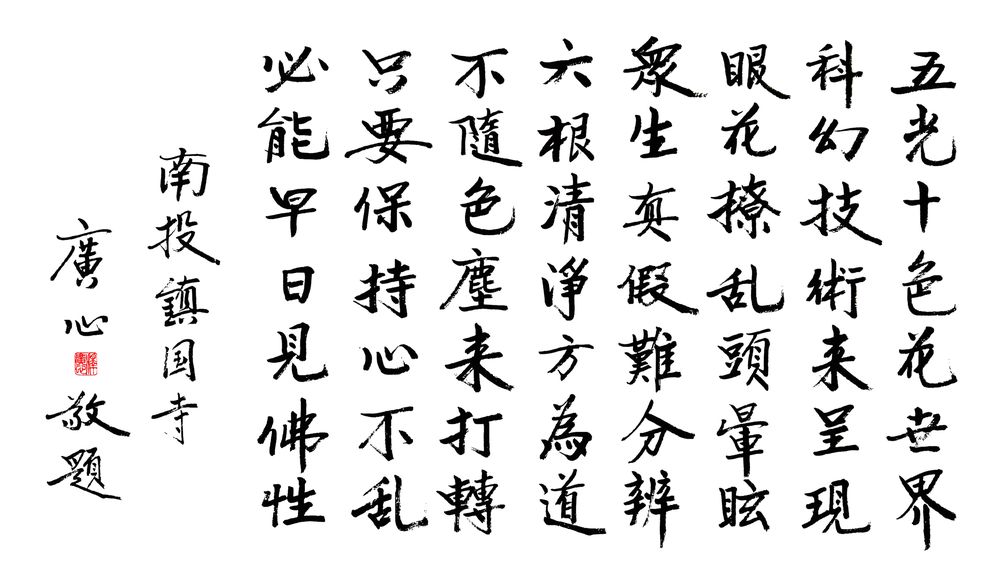 五光十色花世界
科幻技術来呈現
眼花撩乱頭暈眩
眾生真假難分辨
六根清淨方為道
不隨色塵来打轉
只要保持心不乱
必能早日見佛性
南投鎮国寺
廣心敬題